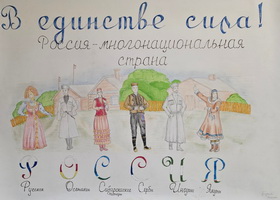 В единстве сила!
Россия-многонациональная
страна
Р О С С И Я
Русские Осетины Сибирские татары Сербы Ингуши Якуты